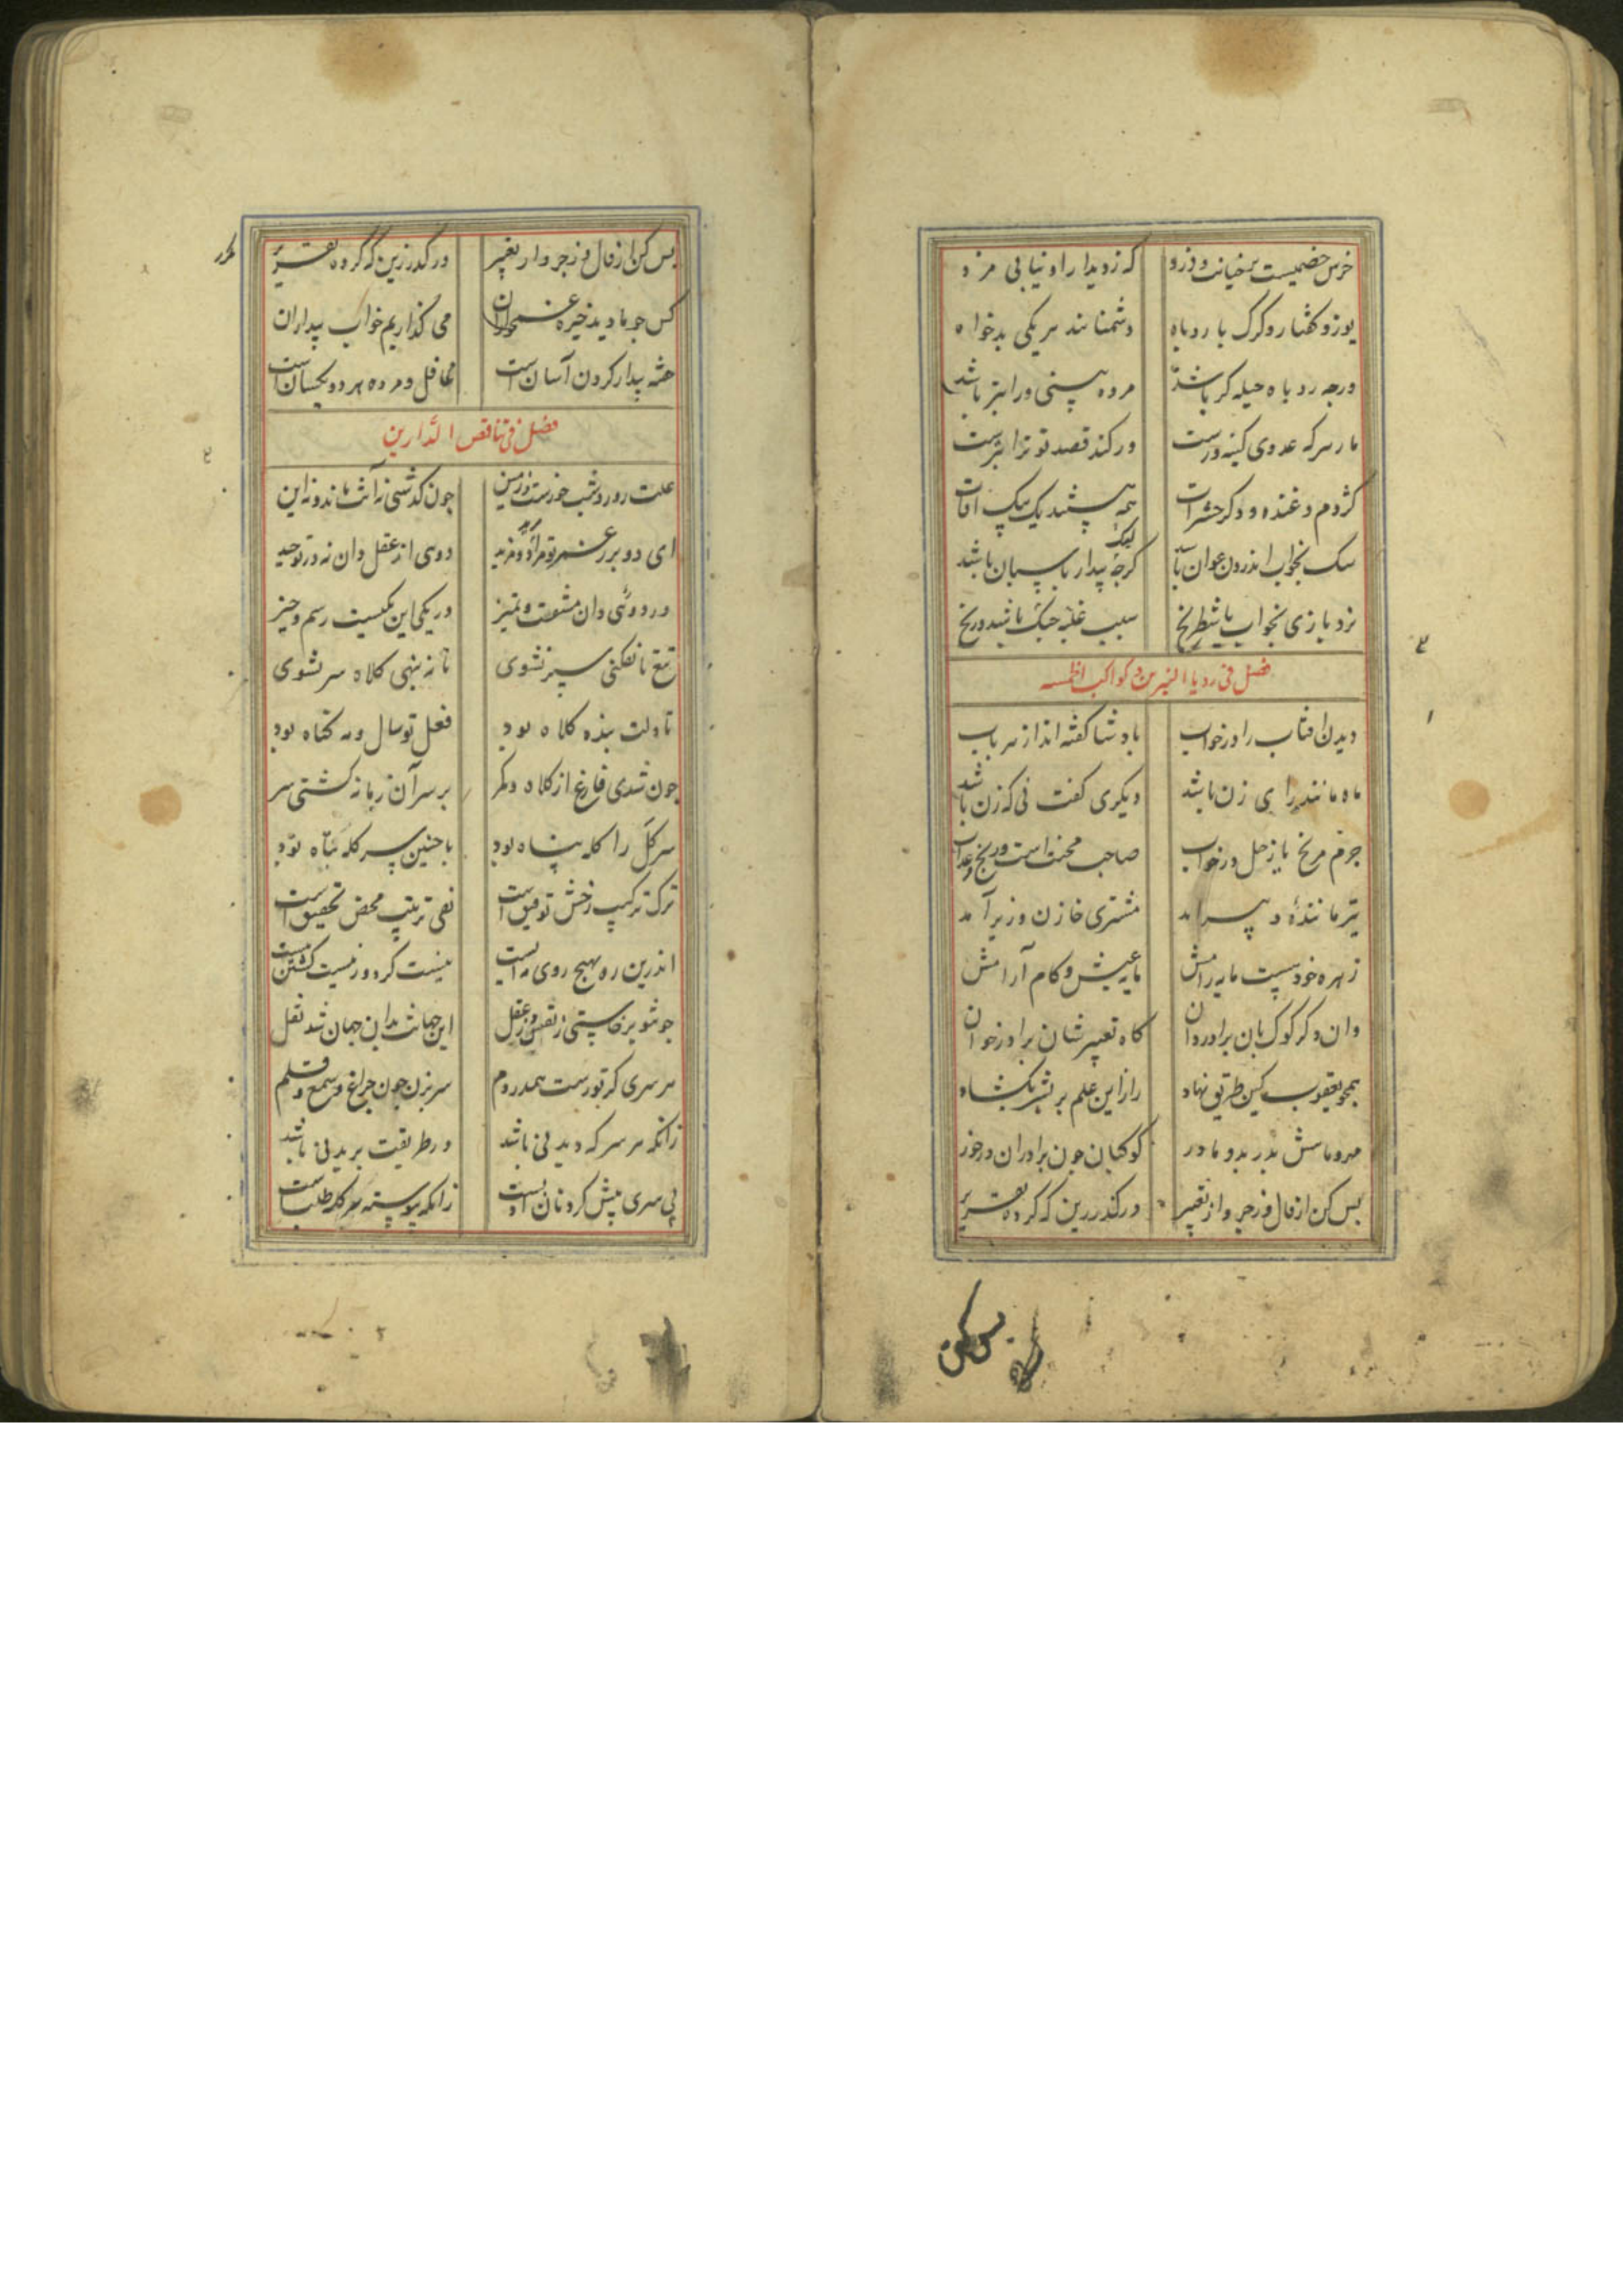 خرس خصمیست پر خیانت و دزد که ز دیدار او نیابی مزد
یوز و کفتار و گرگ با روباه دشمنانند هر یکی بدخواه
ورچه روباه حیله گر باشد مرده بینی ورا بتر باشد
مار سر که عدوی کینه ورست ور کند قصد تو ترا بترست
کژدم و غنده و دگر حشرات همه هستند یک بیک آفات
سگ بخواب اندرون عوان باشد لیک گرچه بیدار پاسبان باشد
نرد بازی بخواب یا شطرنج سبب غلبه جنک باشد و رنج
فصل فی رویا النیرین و کواکب الخمسه
دیدن آفتاب را در خواب پادشا گفته اند از هر باب
ماه مانند رای زن باشد دیکری گفت نی که زن باشد
جرم مریخ یا زحل در خواب صاحب محنتست و رنج و عذاب
تیر مانندهٔ دبیر آمد مشتری خازن و وزیر آمد
زهره خود هست مایه رامش مایه عیش و کام و آرامش
وان دگر کوکبان برادر دان گاه تعبیرشان برادر خوان
همچو یعقوب کین طریق نهاد راز این علم بر بشر بکشاد
مهر و ماهش پدر بدو مادر کوکبان چون برادران در خور
بس کن از فال و زجر و از تعبیر در گذر زین که کرده تقریر
بس کن
بس کن از فال و زجر و از تعبیر در گذر زین که کرده تقریر
کس چو ما دید خیره غمخواران می گذاریم خواب بیداران
خفته بیدار کردن آسان است غافل و مرده هر دو یکسان است
فصل فی تناقض الدارین
علت روز و شب خورست و زمین چون گذشتی نه آنت ماند و نه این
ای دو بر عنصر تو مراد و مزید دوسی از عقل دان نه در توحید
در دوئی دان مشقت و تمیز در یکی این یکیست رسم و چیز
تیغ تا نفکنی سپر نشوی تا نه بنهی کلاه سر نشوی
تا دلت بنده کلاه بود فعل تو سال و مه گناه بود
چون شدی فارغ از کلاه و کمر بر سر آن زمانه گشتی سر
سر کل را کله پناه بود با چنین سر کله تباه بود
ترک ترکیب رخش توفیق است نفی ترتیب محض تحقیق است
اندرین ره بهیچ روی نه ایست نیست گردد ز نیست گشتن نیست
چو تو برخاستی ز نفس و ز عقل این جهانت بدان جهان شد نقل
هر سری کز تو رست هم در دم سر بزن چون چراغ و شمع و قلم
زانکه هر سر که دیدنی باشد در طریقت بریدنی باشد
بی سری پیش گردنان ادبست زانکه پیوسته سر کله طلبست